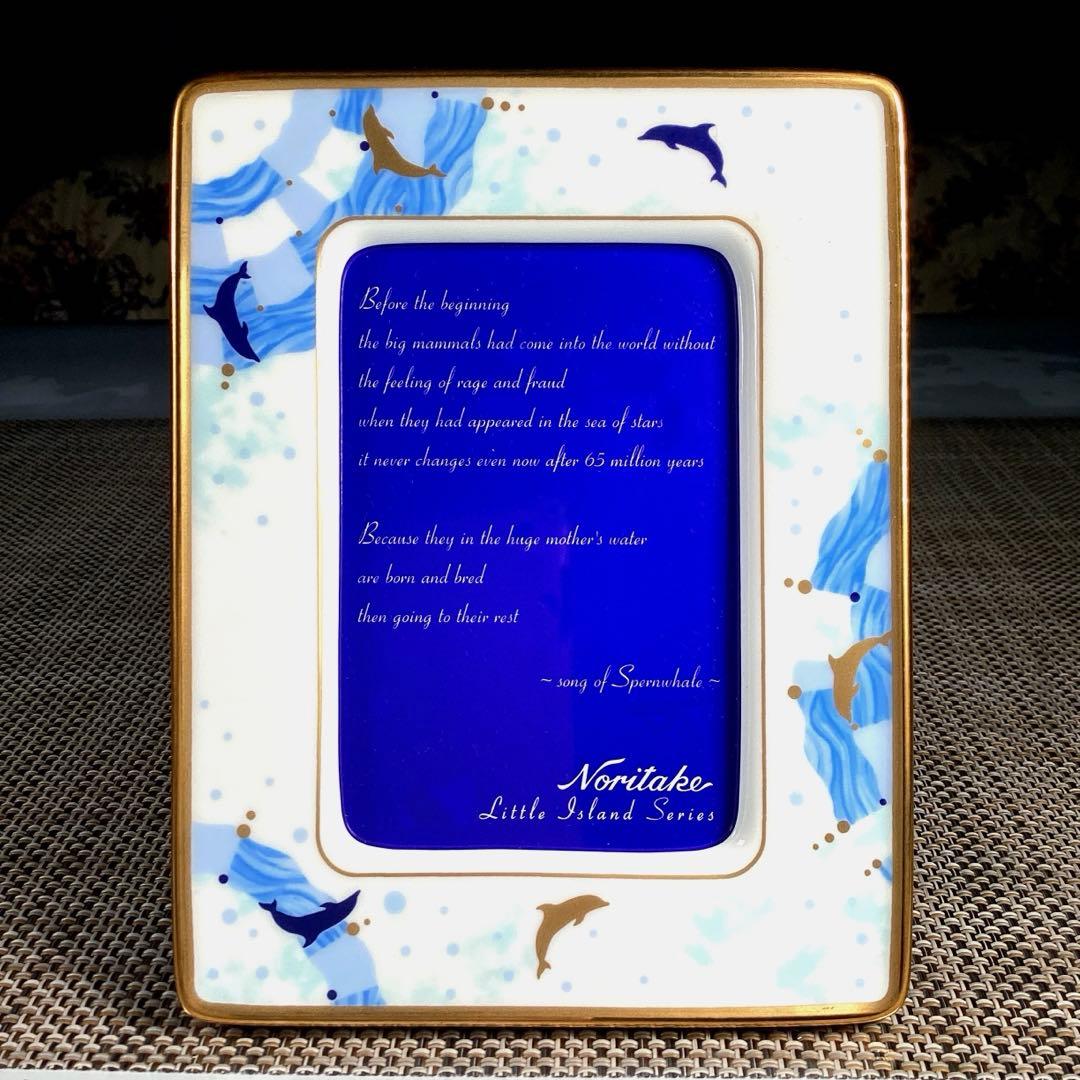 Before the beginning
the big mammals had come into the world without
the feeling of rage and fraud
when they had appeared in the sea of stars
it never changes even now after 65 million years
Because they in the huge mother's water
are born and bred
then going to their rest
~ song of Spernwhale ~
Noritake
Little Island Series